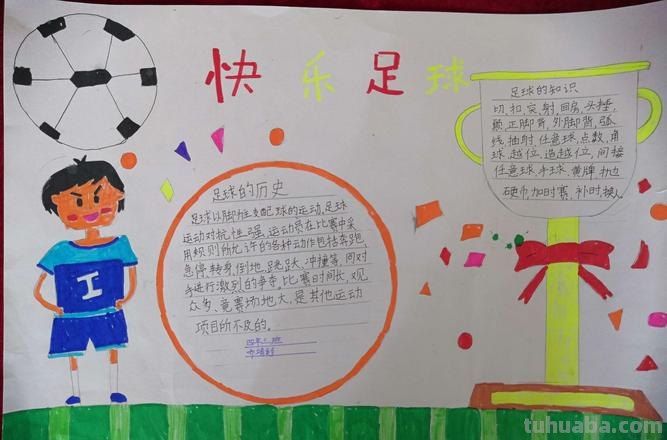 快乐足球
足球的知识
切、扣、突、射、回房、头捶,
颠、正脚背、外脚背、弧
线、抽射、任意球、点数、角
球、越位、造越位、间接
任意球、手球、黄牌、加
硬币、加时赛、补时、换人。
足球的历史
足球以脚为主支配球的运动,足球
运动对抗性强,运动员在比赛中采
用规则所允许的各种动作包括奔跑、
急停、转身、倒地、跳跃、冲撞等,同对
手进行激烈的争夺。比赛时间长,观
众多、竞赛场地大,是其他运动
项目所不及的。
四年二班
I
tuhuaba.com